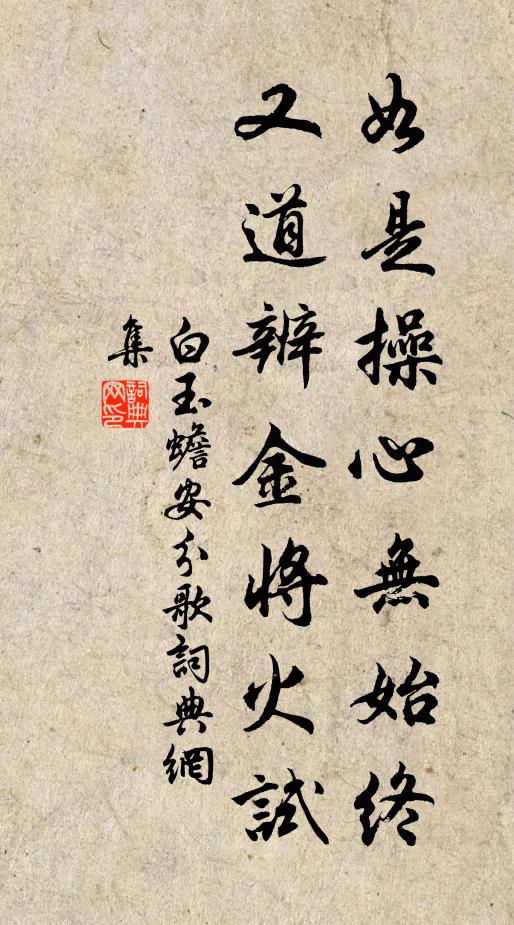 如是操心無始終
又道辨金將火試
白玉蟾安分歌詞典網
集
詞典網印